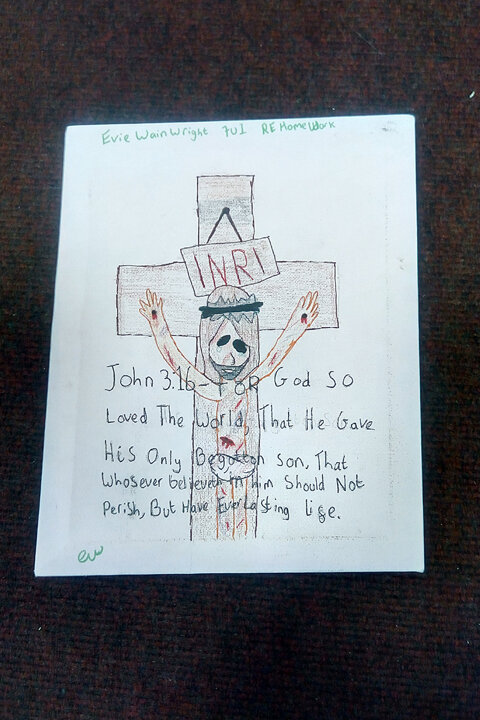 Evie WainWright 7U1 RE HomeWork
INRI
John 3.16- FOR God so
Loved The World, That He Gave
His Only Begotton son, That
Whosever believeth in him Should Not
Perish, But Have Everlasting life.
ew